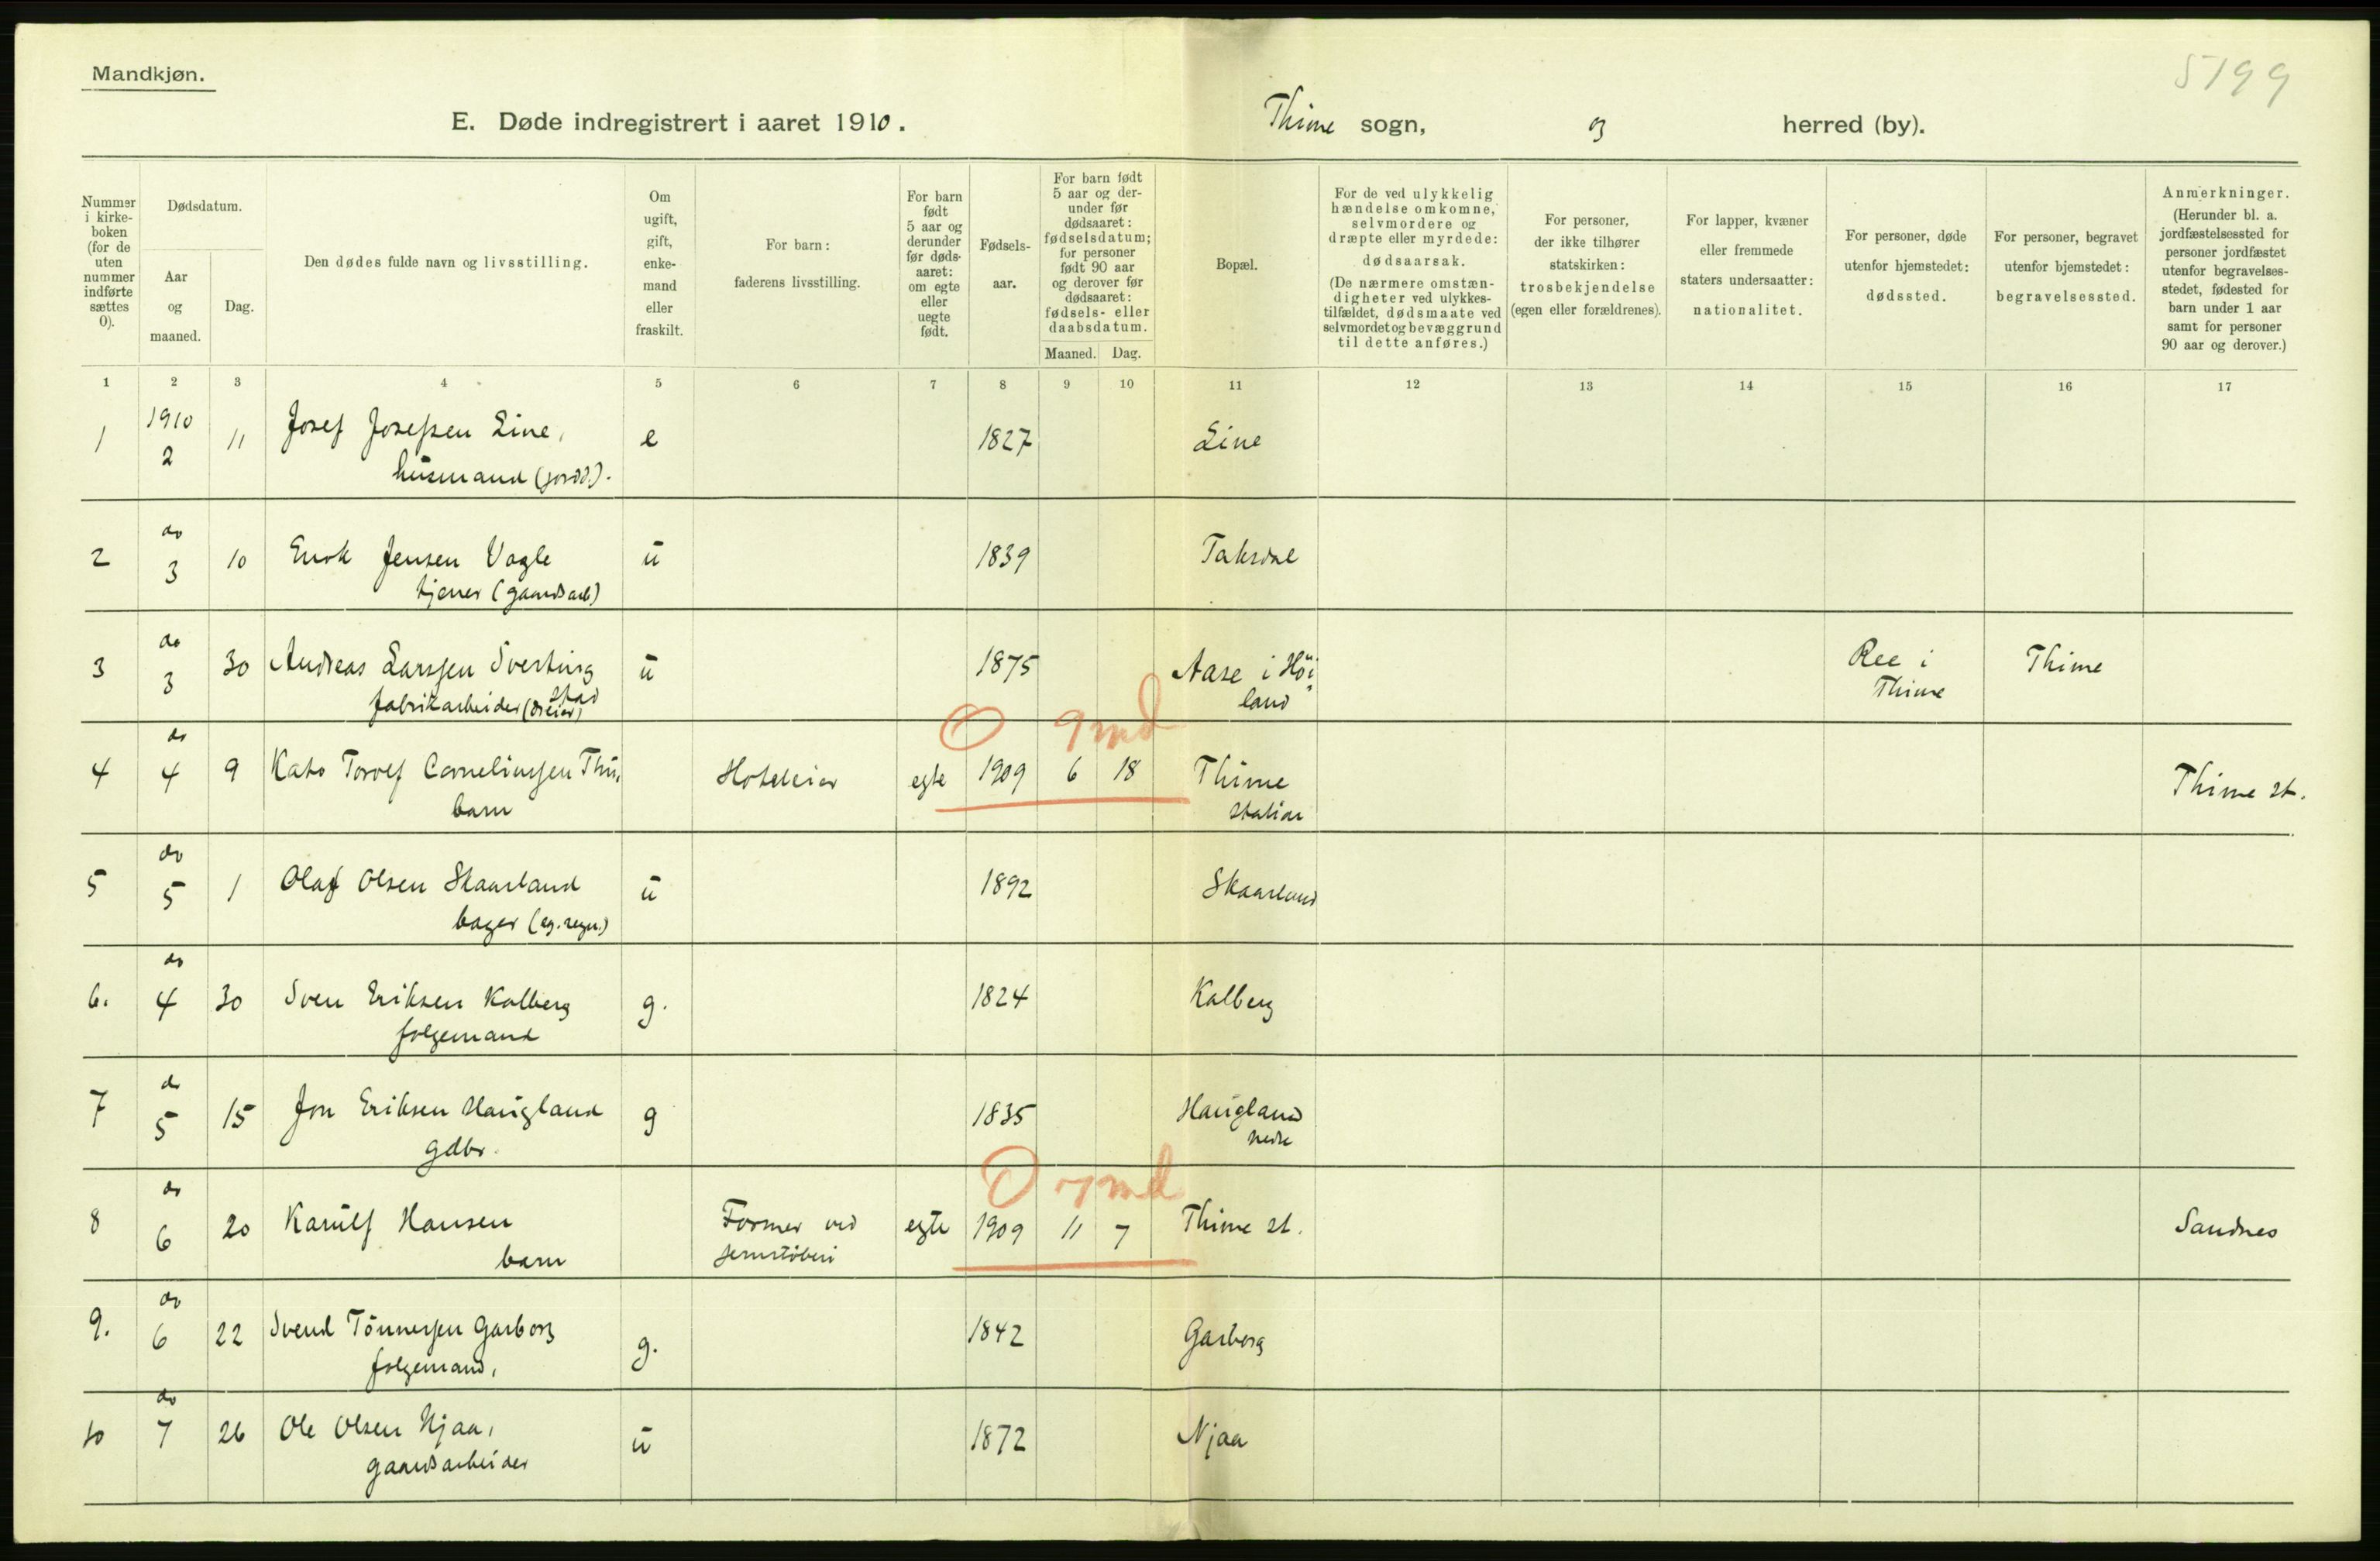 Mandkjøn.
5199
E. Døde indregistrert i aaret 1910. Thime sogn, og herred (by).
Nummer i kirke-boken (for de uten nummer indførte sættes 0).
Dødsdatum.
Aar og maaned.
Dag.
Den dødes fulde navn og livsstilling.
Om ugift, gift, enke-mand eller fraskilt.
For barn: faderens livsstilling.
For barn født 5 aar og derunder før døds-aaret: om egte eller uegte født.
Fødsels-aar.
For barn født 5 aar og der-under før dødsaaret: fødselsdatum; for personer født 90 aar og derover før dødsaaret: fødsels- eller daabsdatum.
Maaned. Dag.
Bopæl.
For de ved ulykkelig hændelse omkomne, selvmordere og dræpte eller myrdede: dødsaarsak.
(De nærmere omstæn-digheter ved ulykkes-tilfældet, dødsmaate ved selvmordet og bevæggrund til dette anføres.)
For personer, der ikke tilhører statskirken: trosbekjendelse (egen eller forældrenes).
For lapper, kvæner eller fremmede staters undersaatter: nationalitet.
For personer, døde utenfor hjemstedet: dødssted.
For personer, begravet utenfor hjemstedet: begravelsessted.
Anmerkninger.
(Herunder bl. a. jordfæstelsessted for personer jordfæstet utenfor begravelses-stedet, fødested for barn under 1 aar samt for personer 90 aar og derover.)
1 2 3 4 5 6 7 8 9 10 11 12 13 14 15 16 17
1 1910 2 11 Josef Josefsen Line, e 1827 Line
husmand (jordd.).
2 do 3 10 Enok Jensen Vagle u 1839 Taksdal
tjener (gaardsarb)
3 do 3 30 Andreas Larssen Sverting u 1875 Aase i Höi Ree i Thime
stad land Thime
fabrikarbeider (dreier)
0 9 md
4 do 4 9 Kato Torolf Corneliussen Thu, Hoteleier egte 1909 6 18 Thime Thime st.
barn station
5 do 5 1 Olaf Olsen Skaarland u 1892 Skaarland
bager (eg. regn.)
6. do 4 30 Sven Eriksen Kalberg g. 1824 Kalberg
folgemand
7 do 5 15 Jon Eriksen Haugland g 1835 Haugland
gdbr. nedre
0 7 md
8 do 6 20 Karulf Hansen Former ved egte 1909 11 7 Thime st. Sandnes
barn jernstöberi
9. do 6 22 Svend Tönnessen Garborg g. 1842 Garborg
folgemand,
10 do 7 26 Ole Olsen Njaa, u 1872 Njaa
gaardsarbeider